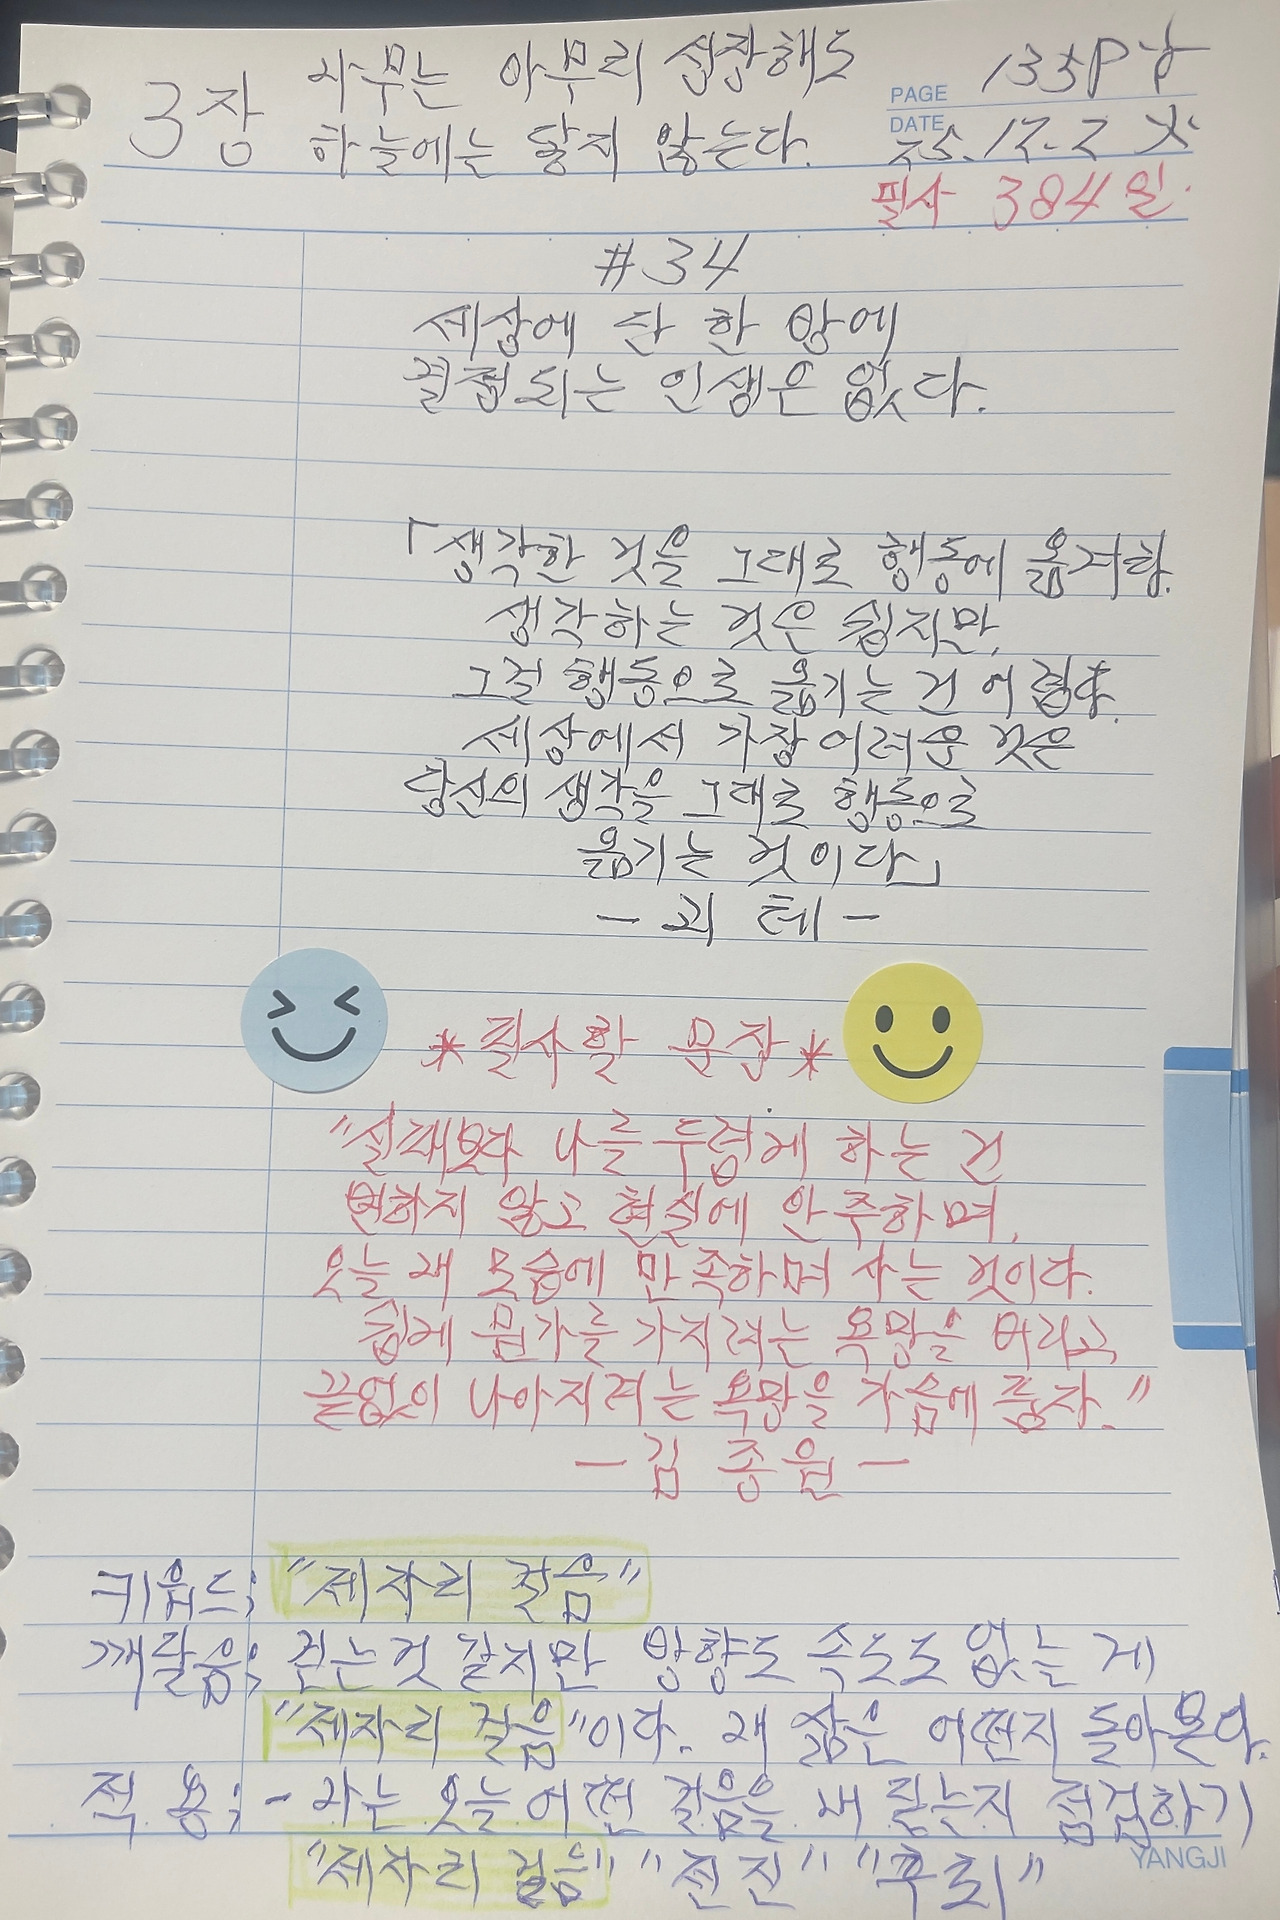 3장 나무는 아무리 성장해도
하늘에는 닿지 않는다.
PAGE 135P
DATE 25.12.2 火
필사 384일.
#34
세상에 단 한 방에
결정되는 인생은 없다.
「생각한 것을 그대로 행동에 옮겨라.
생각하는 것은 쉽지만,
그걸 행동으로 옮기는 건 어렵다.
세상에서 가장 어려운 것은
당신의 생각을 그대로 행동으로
옮기는 것이다」
- 괴테 -
*필사할 문장*
"실패보다 나를 두렵게 하는 건
변하지 않고 현실에 안주하며,
오늘 내 모습에 만족하며 사는 것이다.
쉽게 뭔가를 가지려는 욕망을 버리고,
끝없이 나아지려는 욕망을 가슴에 품자."
- 김종원 -
키워드; "제자리 걸음"
깨달음; 걷는것 같지만 방향도 속도도 없는 게
"제자리 걸음"이다. 내 삶은 어떤지 돌아본다.
적용; - 나는 오늘 어떤 걸음을 내 딛는지 점검하기
"제자리 걸음" "전진" "후퇴"
YANGJI